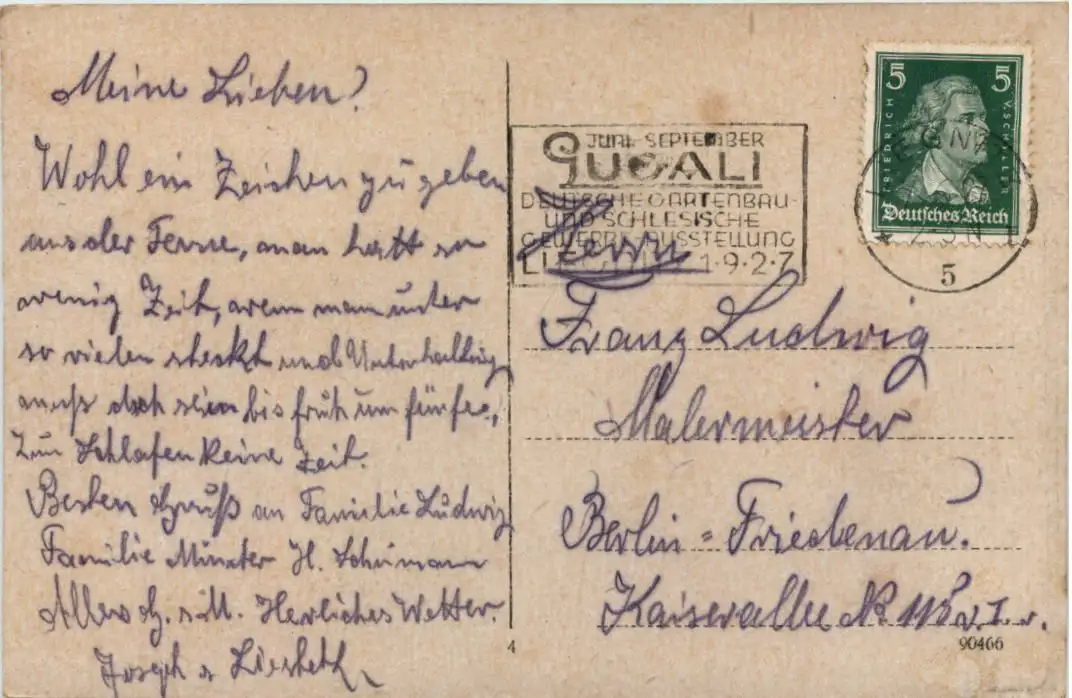 Meine Lieben!
Wohl ein Zeichen zu geben
aus der Ferne, man hatt so
wenig Zeit, wenn man unter
so vielen steckt und Unterhaltung
muß doch sein bis früh um fünfe,
Zum Schlafen keine Zeit.
Besten Gruß an Familie Ludwig
Familie Münster H. Schumann
Herliches Wetter.
Joseph u Liesbeth
JUNI-SEPTEMBER
GUGALI
DEUTSCHE GARTENBAU-
UND SCHLESISCHE
GEWERBE AUSSTELLUNG
LIEGNITZ 1·9·2·7
5 5
FRIEDRICH V. SCHILLER
Deutsches Reich
LIEGNITZ
5
Herrn
Franz Ludwig
Malermeister
Berlin-Friedenau.
Kaiserallee
4
90466